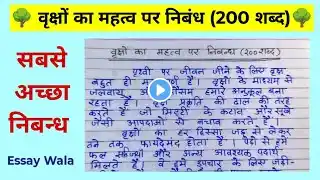 वृक्षों का महत्व पर निबंध (200 शब्द)
सबसे
अच्छा
निबन्ध
Essay Wala
वृक्षों का महत्व पर निबन्ध (200 शब्द)
पृथ्वी पर जीवन जीने के लिए वृक्ष
बहुत ही म पूर्ण है। वृक्षों के माध्यम से
जलवायु मौसम हमारे अनुकूल बना
रहता है। वृक्ष प्रकृति की ढाल की तरह
करते है जो मिट्टी के कटाव और सूखे
जैसी आपदाओं से बचाव करते है।
वृक्षों का हर हिस्सा जड़ से लेकर
तने तक फायदेमंद होता है। पेड़ों से हमें
फल सब्जियां और अन्य आवश्यक पदार्थ
मिलते है। वे हमें उपचार के लिए जड़ी-